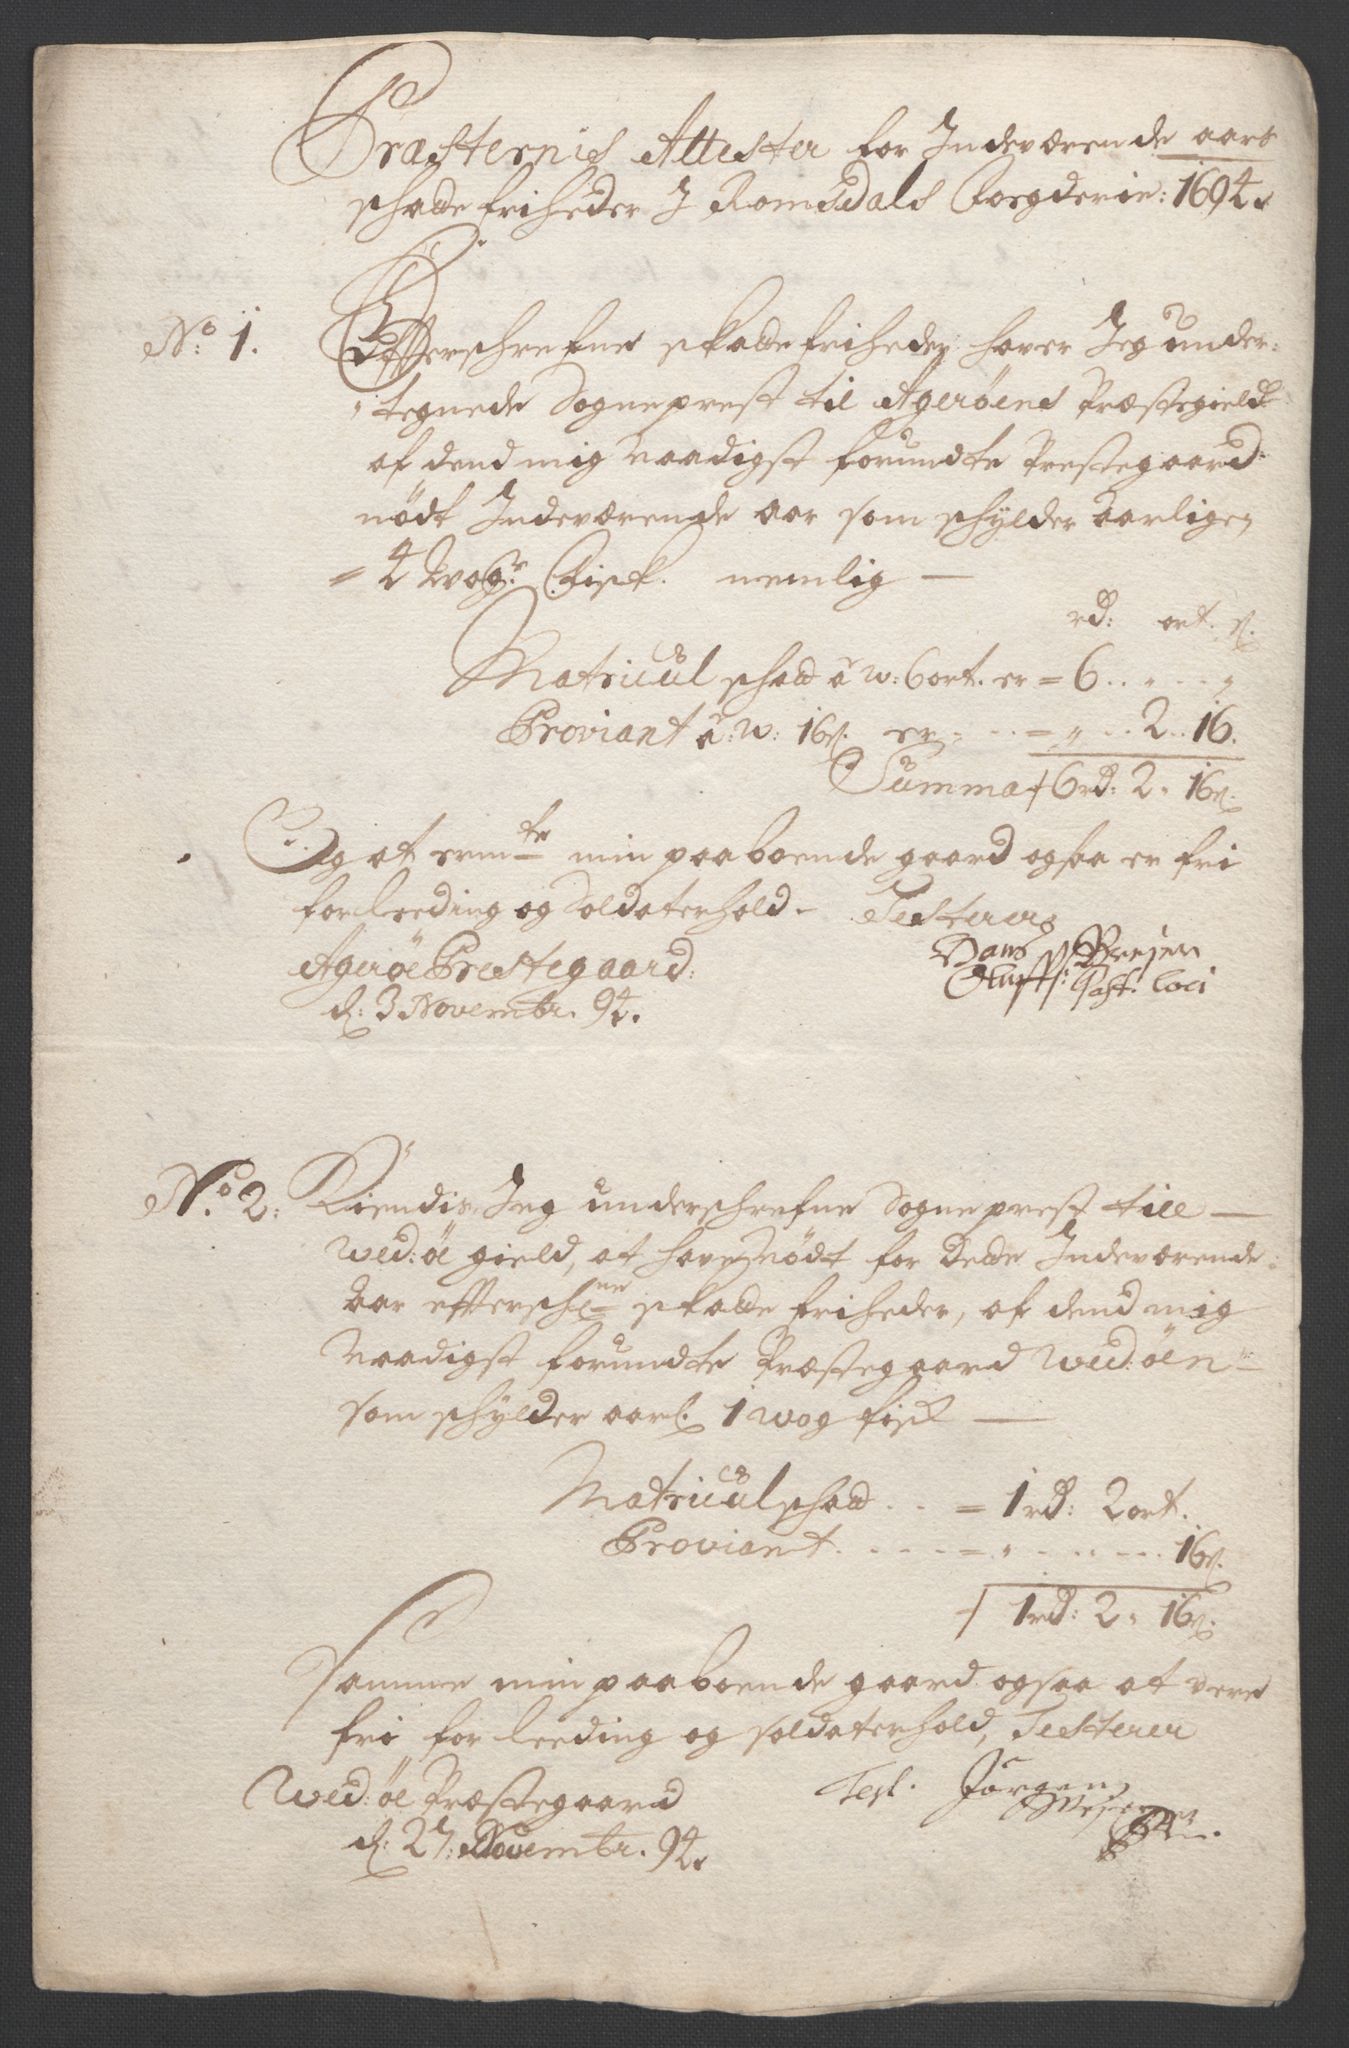 Præsternis Attester for Indeværende aars
schatte friheder J Romsdals Foegderie: 1694.
No: 1. Effterschrefne skatte friheder haver Jeg under-
tegnede Sogneprest til Agerøens Præstegield
af dend mig naadigst forundte Prestegaard
nødt Indeværende aar som schylder aarligen
4 Woger Fisk. nemlig
rd: ort. s.
Matricul schatt a w: 6 ort. er = 6 . . " . . "
Proviant a: w: 16 s. er . . . = " . . 2 . . 16.
Summa 6 rd: 2 . 16 s.
Og at ermte min paaboende gaard ogsaa er fri
for leeding og Soldaterhold. Testerer
Agerøe Prestegaard:
d: 3 Novembr. 94.
Past. Loci
No. 2: Kiendis Jeg underschrefne Sogneprest till
Wed:øe gield, at haver nødt for dette Indeværende
aar effterschne skatte friheder, af dend mig
naadigst forundte Præstegaard Wed:øen
som schylder aarl. 1 wog fisk
Matricul schatt . . = 1 rd: 2 ort.
Proviant . . . . = " . . . . . 16 s.
1 rd: 2 " 16 s.
Samme min paaboende gaard ogsaa at vere
fri for leeding og soldaterhold, Testerer
Wed:øe Præstegaard
Test. Jørgen
d: 27: Novembr. 94.